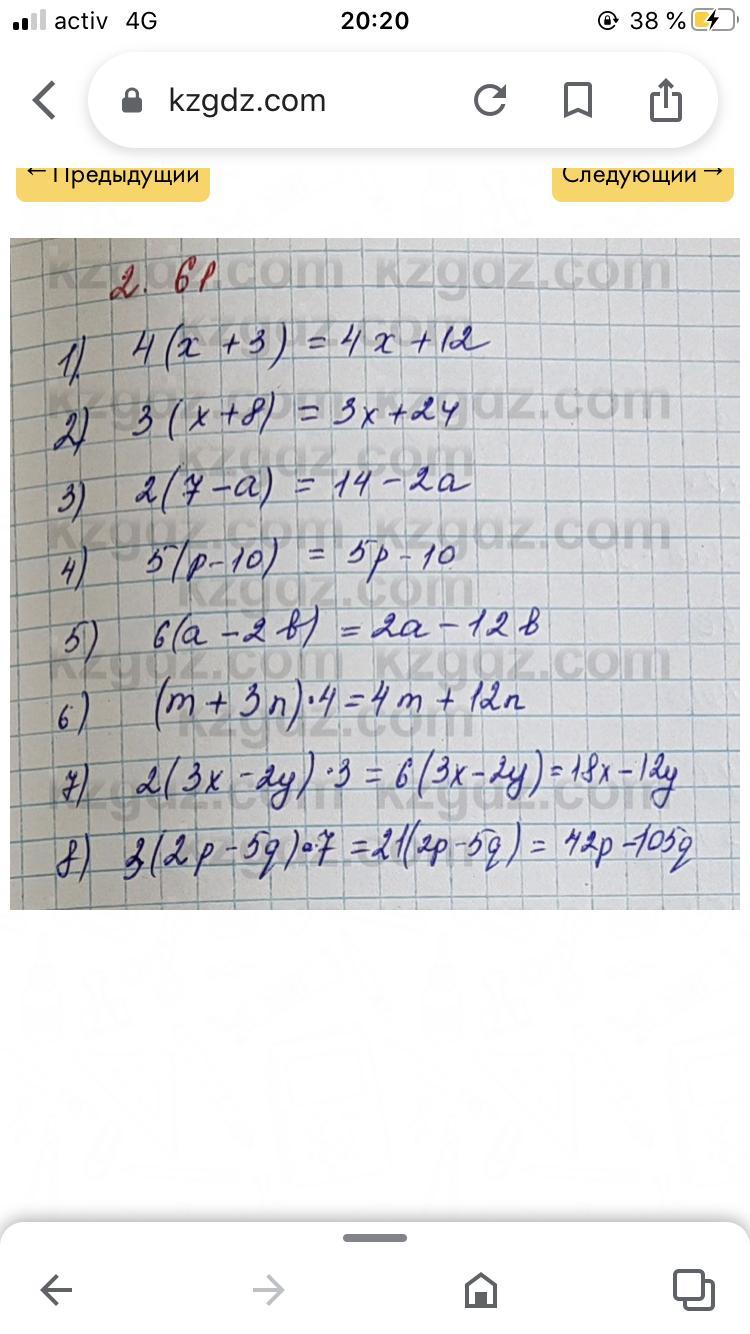 activ 4G 20:20 38 %
kzgdz.com
← Предыдущий Следующий →
2. 61
1) 4(x + 3) = 4x + 12
2) 3(x + 8) = 3x + 24
3) 2(7 - a) = 14 - 2a
4) 5(p - 10) = 5p - 10
5) 6(a - 2b) = 2a - 12b
6) (m + 3n)·4 = 4m + 12n
7) 2(3x - 2y)·3 = 6(3x - 2y) = 18x - 12y
8) 3(2p - 5q)·7 = 21(2p - 5q) = 42p - 105q